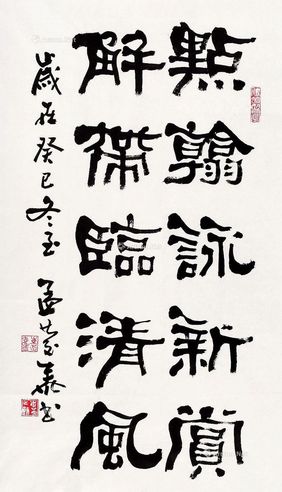 點翰詠新賞
解帶臨清風
歲在癸巳冬至 孟
書